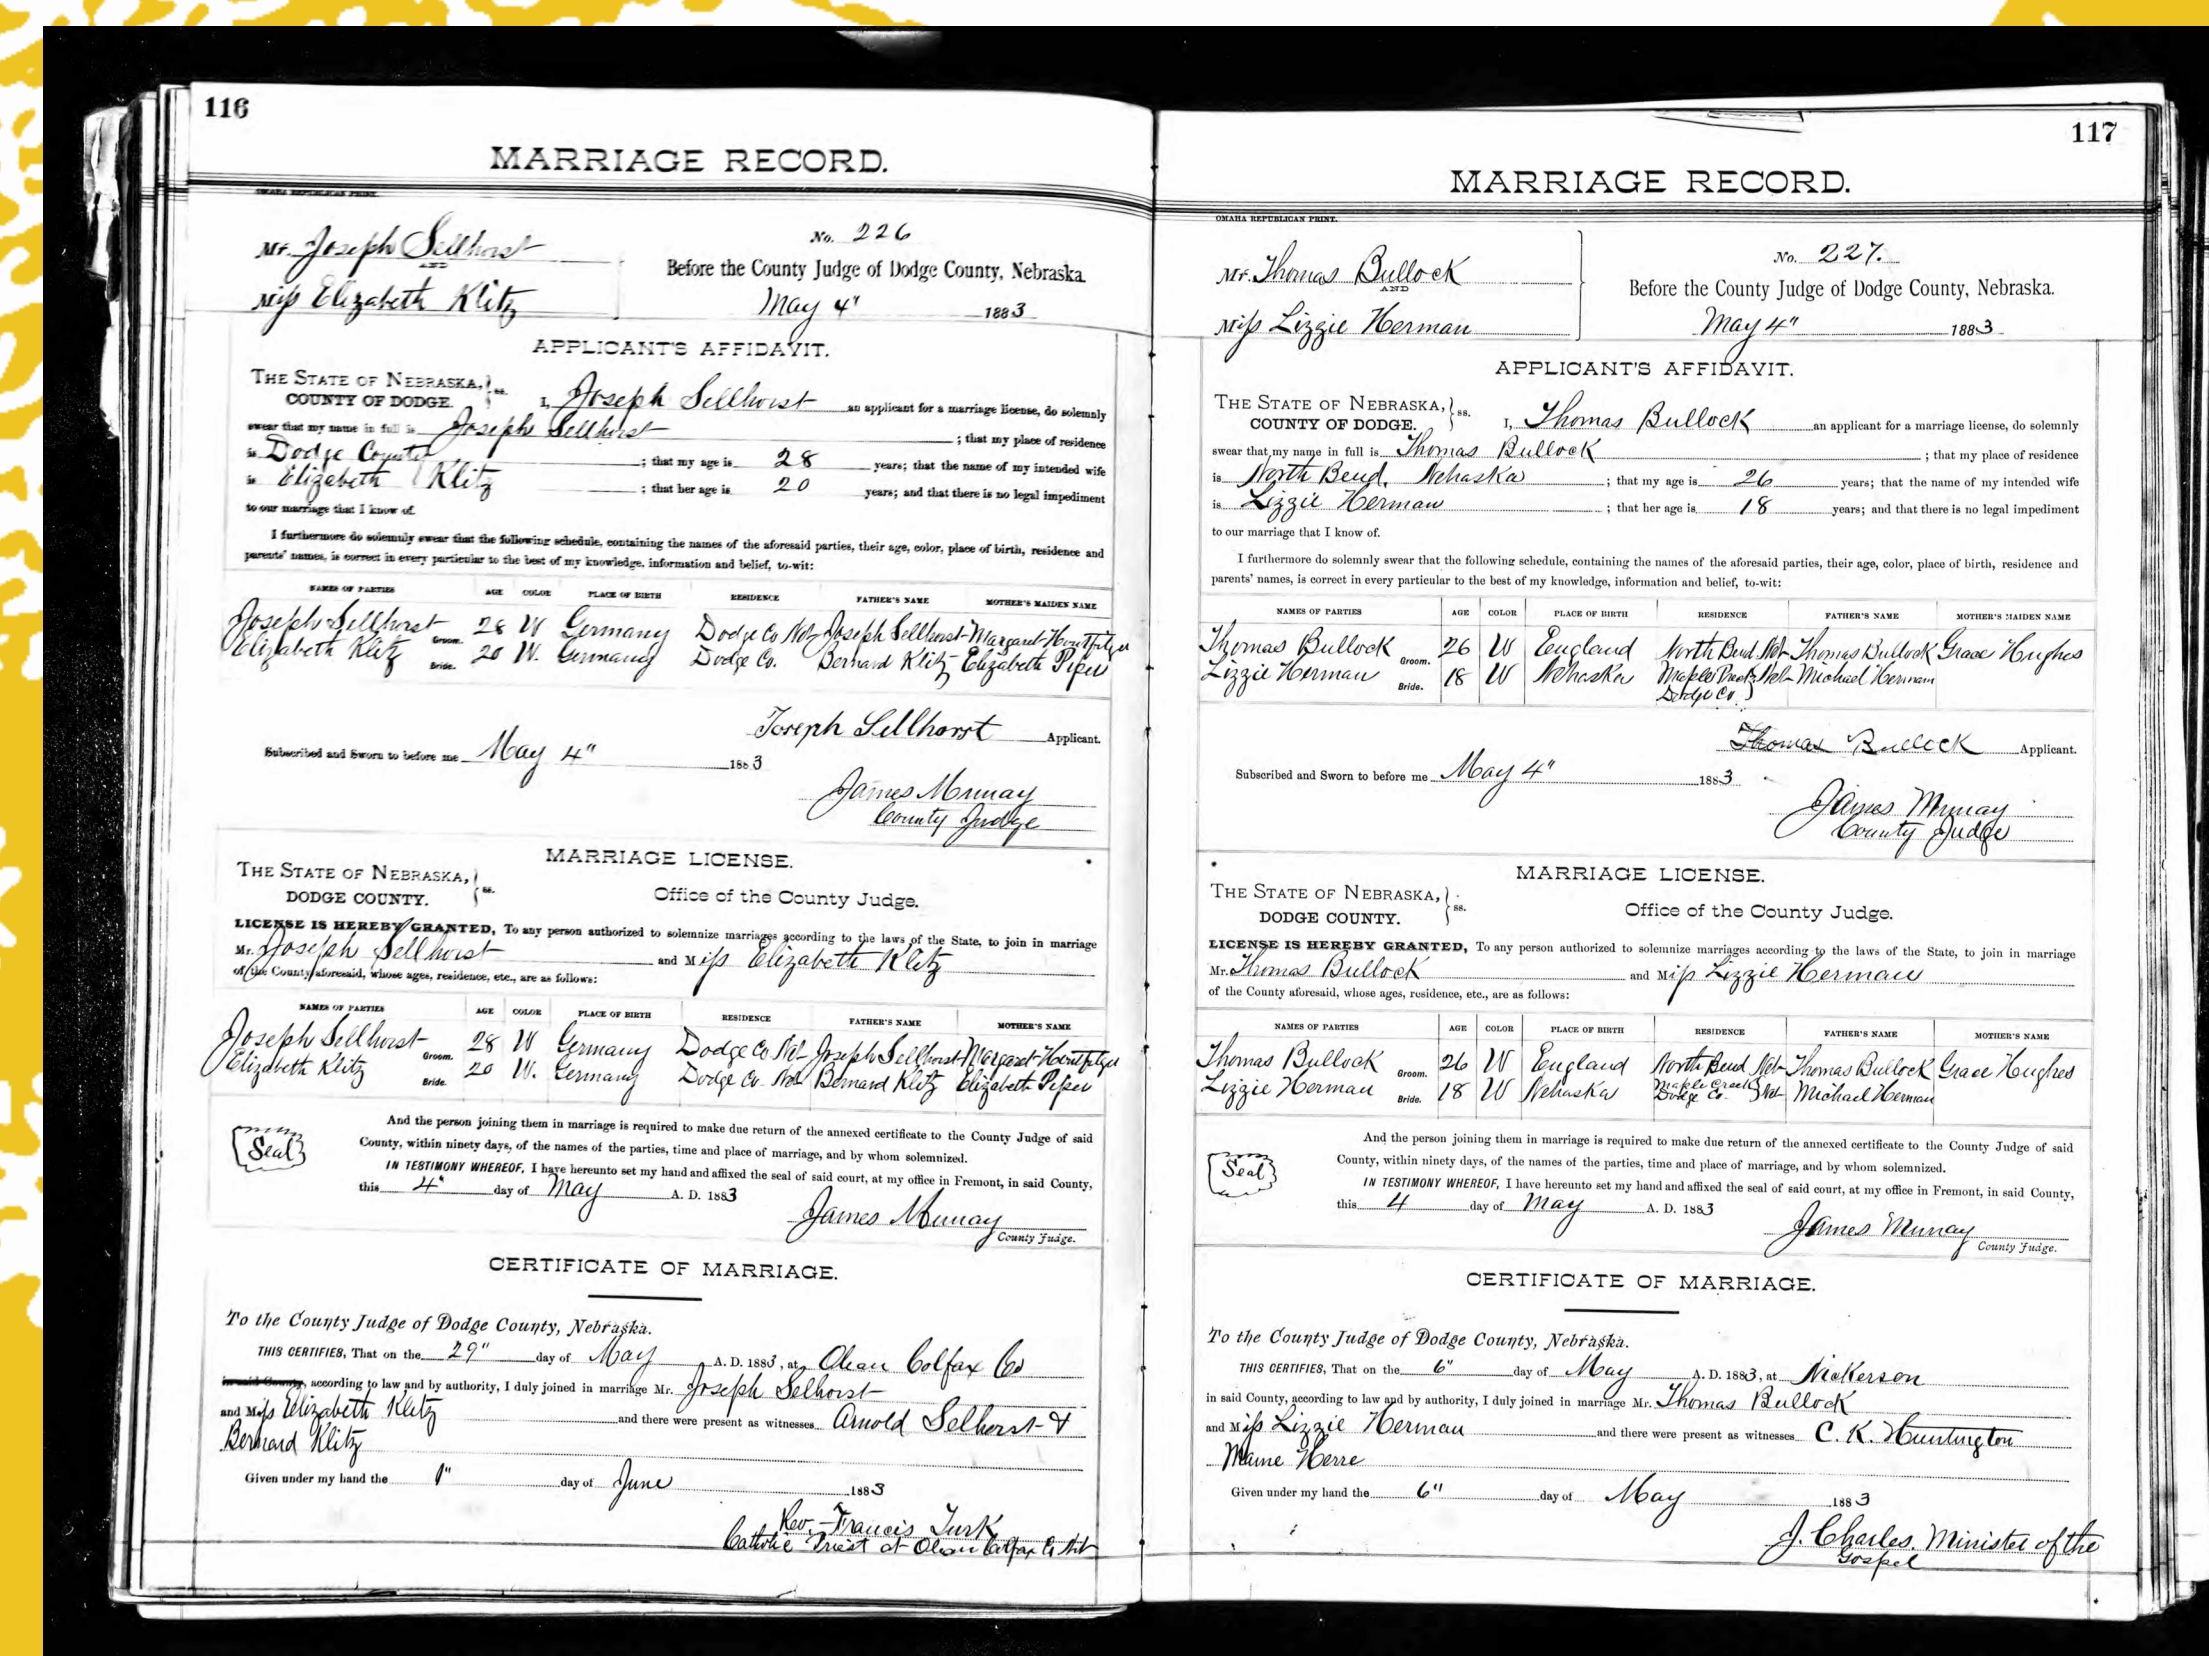 116
MARRIAGE RECORD.
OMAHA REPUBLICAN PRINT.
Mr. Joseph Sellhorst
AND
Miss Elizabeth Klitz
No. 226
Before the County Judge of Dodge County, Nebraska.
May 4" 1883
APPLICANT'S AFFIDAVIT.
THE STATE OF NEBRASKA, } ss.
COUNTY OF DODGE.
I, Joseph Sellhorst an applicant for a marriage license, do solemnly
swear that my name in full is Joseph Sellhorst ; that my place of residence
is Dodge County ; that my age is 28 years; that the name of my intended wife
is Elizabeth Klitz ; that her age is 20 years; and that there is no legal impediment
to our marriage that I know of.
I furthermore do solemnly swear that the following schedule, containing the names of the aforesaid parties, their age, color, place of birth, residence and
parents' names, is correct in every particular to the best of my knowledge, information and belief, to-wit:
NAMES OF PARTIES AGE COLOR PLACE OF BIRTH RESIDENCE FATHER'S NAME MOTHER'S MAIDEN NAME
Joseph Sellhorst Groom. 28 W Germany Dodge Co Neb Joseph Sellhorst Margaret
Elizabeth Klitz Bride. 20 W. Germany Dodge Co. Bernard Klitz Elizabeth Piper
Joseph Sellhorst Applicant.
Subscribed and Sworn to before me May 4" 1883
James Murray
County Judge
MARRIAGE LICENSE.
THE STATE OF NEBRASKA, } ss.
DODGE COUNTY.
Office of the County Judge.
LICENSE IS HEREBY GRANTED, To any person authorized to solemnize marriages according to the laws of the State, to join in marriage
Mr. Joseph Sellhorst and Miss Elizabeth Klitz
of the County aforesaid, whose ages, residence, etc., are as follows:
NAMES OF PARTIES AGE COLOR PLACE OF BIRTH RESIDENCE FATHER'S NAME MOTHER'S NAME
Joseph Sellhorst Groom. 28 W Germany Dodge Co Neb Joseph Sellhorst Margaret
Elizabeth Klitz Bride. 20 W. Germany Dodge Co. Neb Bernard Klitz Elizabeth Piper
Seal
And the person joining them in marriage is required to make due return of the annexed certificate to the County Judge of said
County, within ninety days, of the names of the parties, time and place of marriage, and by whom solemnized.
IN TESTIMONY WHEREOF, I have hereunto set my hand and affixed the seal of said court, at my office in Fremont, in said County,
this 4" day of May A. D. 1883
James Murray
County Judge.
CERTIFICATE OF MARRIAGE.
To the County Judge of Dodge County, Nebraska.
THIS CERTIFIES, That on the 29" day of May A. D. 1883, at Olean Colfax Co
in said County, according to law and by authority, I duly joined in marriage Mr. Joseph Selhorst
and Miss Elizabeth Klitz and there were present as witnesses Arnold Selhorst &
Bernard Klitz
Given under my hand the 1" day of June 1883
Rev. Francis Turk
Catholic Priest at Olean Colfax Co Neb
117
MARRIAGE RECORD.
OMAHA REPUBLICAN PRINT.
Mr. Thomas Bullock
AND
Miss Lizzie Herman
No. 227.
Before the County Judge of Dodge County, Nebraska.
May 4" 1883
APPLICANT'S AFFIDAVIT.
THE STATE OF NEBRASKA, } ss.
COUNTY OF DODGE.
I, Thomas Bullock an applicant for a marriage license, do solemnly
swear that my name in full is Thomas Bullock ; that my place of residence
is North Bend, Nebraska ; that my age is 26 years; that the name of my intended wife
is Lizzie Herman ; that her age is 18 years; and that there is no legal impediment
to our marriage that I know of.
I furthermore do solemnly swear that the following schedule, containing the names of the aforesaid parties, their age, color, place of birth, residence and
parents' names, is correct in every particular to the best of my knowledge, information and belief, to-wit:
NAMES OF PARTIES AGE COLOR PLACE OF BIRTH RESIDENCE FATHER'S NAME MOTHER'S MAIDEN NAME
Thomas Bullock Groom. 26 W England North Bend Neb Thomas Bullock Grace Hughes
Lizzie Herman Bride. 18 W Nebraska Maple Neb Michael Herman
Dodge Co.
Thomas Bullock Applicant.
Subscribed and Sworn to before me May 4" 1883
James Murray
County Judge
MARRIAGE LICENSE.
THE STATE OF NEBRASKA, } ss.
DODGE COUNTY.
Office of the County Judge.
LICENSE IS HEREBY GRANTED, To any person authorized to solemnize marriages according to the laws of the State, to join in marriage
Mr. Thomas Bullock and Miss Lizzie Herman
of the County aforesaid, whose ages, residence, etc., are as follows:
NAMES OF PARTIES AGE COLOR PLACE OF BIRTH RESIDENCE FATHER'S NAME MOTHER'S NAME
Thomas Bullock Groom. 26 W England North Bend Neb Thomas Bullock Grace Hughes
Lizzie Herman Bride. 18 W Nebraska Maple Creek Neb Michael Herman
Dodge Co.
Seal
And the person joining them in marriage is required to make due return of the annexed certificate to the County Judge of said
County, within ninety days, of the names of the parties, time and place of marriage, and by whom solemnized.
IN TESTIMONY WHEREOF, I have hereunto set my hand and affixed the seal of said court, at my office in Fremont, in said County,
this 4 day of May A. D. 1883
James Murray
County Judge.
CERTIFICATE OF MARRIAGE.
To the County Judge of Dodge County, Nebraska.
THIS CERTIFIES, That on the 6" day of May A. D. 1883, at Nickerson
in said County, according to law and by authority, I duly joined in marriage Mr. Thomas Bullock
and Miss Lizzie Herman and there were present as witnesses C. K. Huntington
Mame Herre
Given under my hand the 6" day of May 1883
J. Charles. Minister of the
Gospel